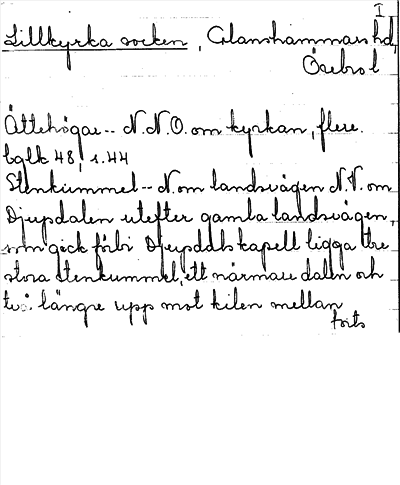 I
Lillkyrka socken, Glanshammars hd,
Örebro l
Ättehögar -- N.N.O. om kyrkan, flere.
bglk 48, s. 44
Stenkummel -- N. om landsvägen N.V. om
Djupdalen utefter gamla landsvägen,
som gick förbi Djupdals kapell ligga tre
stora stenkummel, ett närmare dalen och
två längre upp mot kilen mellan
forts